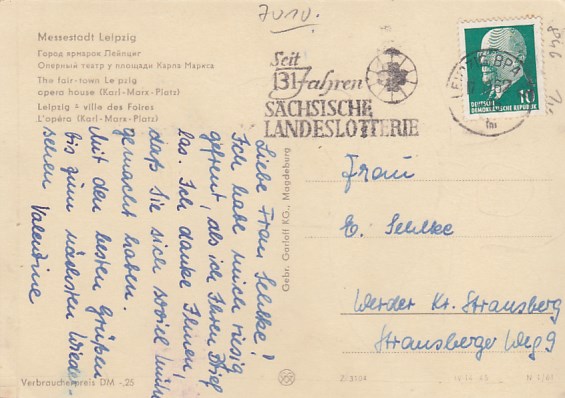 7010.
Messestadt Leipzig
Город ярмарок Лейпциг
Оперный театр у площади Карла Маркса
The fair-town Leipzig
opera house (Karl-Marx-Platz)
Leipzig - ville des Foires
L'opéra (Karl-Marx-Platz)
Seit
131 Jahren
SÄCHSISCHE
LANDESLOTTERIE
LEIPZIG BPA
10
DEUTSCHE
DEMOKRATISCHE REPUBLIK
Liebe Frau Sehlke!
Ich habe mich riesig
gefreut, als ich Ihren Brief
las. Ich danke Ihnen,
daß Sie sich soviel Mühe
gemacht haben.
Mit den besten Grüßen
bis zum nächsten Wieder-
sehen Valentine
Gebr. Garloff KG., Magdeburg
Frau
E. Sehlke
Werder Kr. Strausberg
Strausberger Weg 9
Verbraucherpreis DM -,25